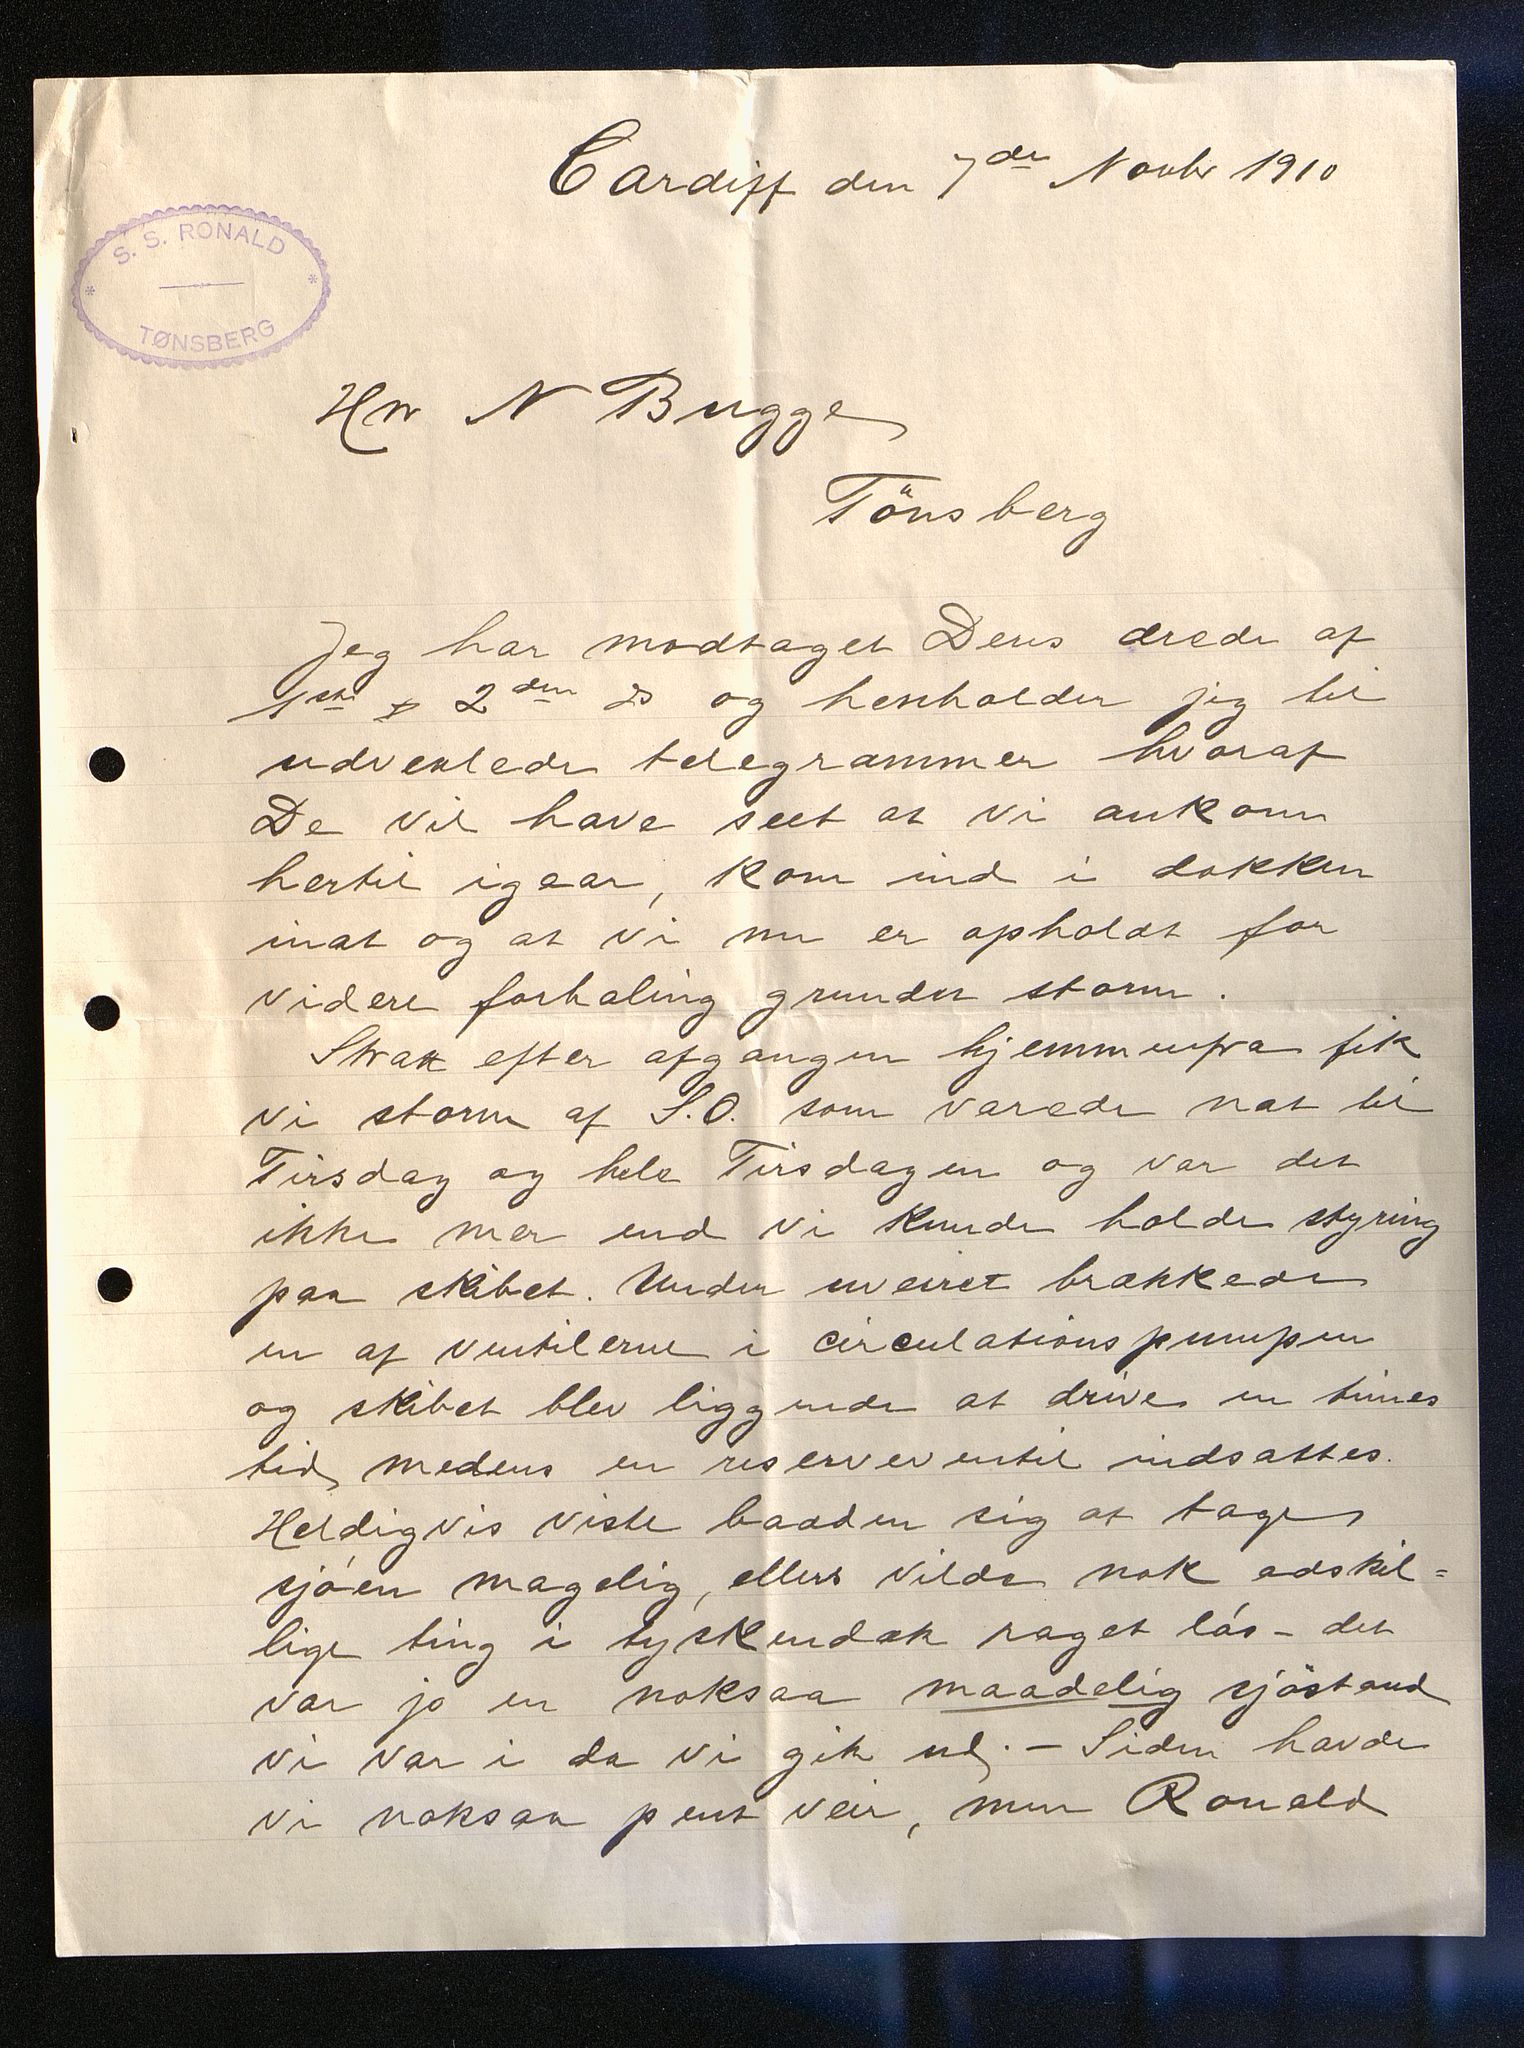 Cardiff den 7de Novbr 1910
S. S. RONALD
TØNSBERG
Hrr N Bugge
Tönsberg
Jeg har modtaget Deres ærede af
1ste & 2den ds og henholder jeg til
udvexlede telegrammer hvoraf
De vil have seet at vi ankom
hertil igaar, kom ind i dokken
inat og at vi nu er opholdt for
videre forhaling grundet storm.
Strax efter afgangen hjemmenfra fik
vi storm af S.O. som varede nat til
Tirsdag og hele Tirsdagen og var det
ikke mer end vi kunde holde styring
paa skibet. Under uveiret brækkede
en af ventilerne i circulationspumpen
og skibet blev liggende at drive en times
tid, medens en reserveventil indsattes.
Heldigvis viste baaden sig at tage
sjóen magelig, ellers vilde nok adskil=
lige ting i tyskendæk raget lós – det
var jo en noksaa maadelig sjöstand
vi var i da vi gik ud. – Siden havde
vi noksaa pent veir, men Ronald